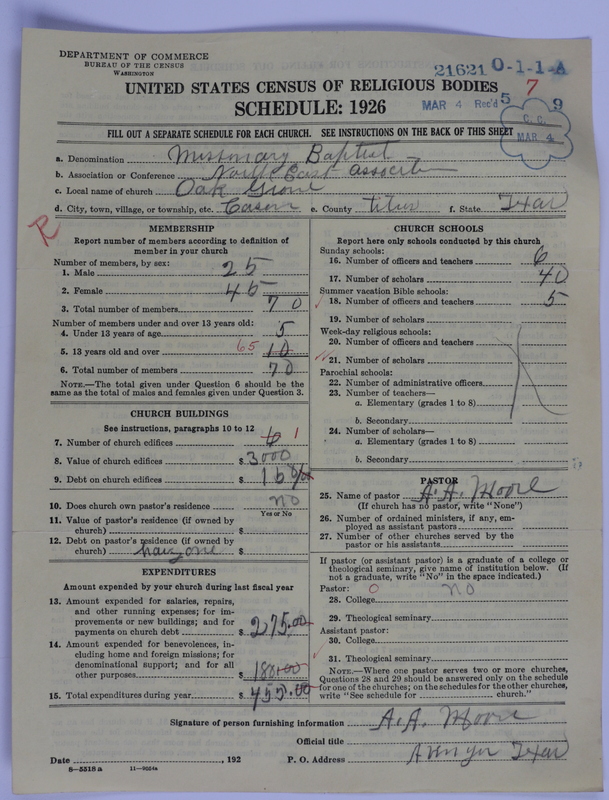 DEPARTMENT OF COMMERCE
BUREAU OF THE CENSUS
WASHINGTON
21621 O-1-1-A
UNITED STATES CENSUS OF RELIGIOUS BODIES
SCHEDULE: 1926
7
MAR 4 Rec'd 5 9
C. C.
MAR 4
FILL OUT A SEPARATE SCHEDULE FOR EACH CHURCH. SEE INSTRUCTIONS ON THE BACK OF THIS SHEET
a. Denomination Missionary Baptist
b. Association or Conference North East Association
c. Local name of church Oak Grove
d. City, town, village, or township, etc. Cason e. County Titus f. State Texas
R
MEMBERSHIP
Report number of members according to definition of
member in your church
Number of members, by sex:
1. Male 25
2. Female 45
3. Total number of members 70
Number of members under and over 13 years old:
4. Under 13 years of age 5
5. 13 years old and over 65 10
6. Total number of members 70
NOTE.—The total given under Question 6 should be
same as the total of males and females given under Question 3.
CHURCH BUILDINGS
See instructions, paragraphs 10 to 12
7. Number of church edifices 1
8. Value of church edifices $ 3000
9. Debt on church edifices $
10. Does church own pastor's residence no
Yes or No
11. Value of pastor's residence (if owned by
church) $
12. Debt on pastor's residence (if owned by
church) $
EXPENDITURES
Amount expended by your church during last fiscal year
13. Amount expended for salaries, repairs,
and other running expenses; for im-
provements or new buildings; and for
payments on church debt $ 275.00
14. Amount expended for benevolences, in-
cluding home and foreign missions; for
denominational support; and for all
other purposes 180.00
15. Total expenditures during year $ 455.00
CHURCH SCHOOLS
Report here only schools conducted by this church
Sunday schools:
16. Number of officers and teachers 6
17. Number of scholars 40
Summer vacation Bible schools:
18. Number of officers and teachers 5
19. Number of scholars
Week-day religious schools:
20. Number of officers and teachers
21. Number of scholars
Parochial schools:
22. Number of administrative officers
23. Number of teachers—
a. Elementary (grades 1 to 8)
b. Secondary
24. Number of scholars—
a. Elementary (grades 1 to 8)
b. Secondary
PASTOR
25. Name of pastor A. A. Moore
(If church has no pastor, write "None")
26. Number of ordained ministers, if any, em-
ployed as assistant pastors
27. Number of other churches served by the
pastor or his assistants
If pastor (or assistant pastor) is a graduate of a college or
theological seminary, give name of institution below. (If
not a graduate, write "No" in the space indicated.)
Pastor: 0 no
28. College
29. Theological seminary
Assistant pastor:
30. College
31. Theological seminary
NOTE.—Where one pastor serves two or more churches,
Questions 28 and 29 should be answered only on the schedule
for one of the churches; on the schedules for the other churches,
write "See schedule for church."
Signature of person furnishing information A. A. Moore
Official title
Date , 192 P. O. Address Texas
8—5518 a 11—9054a